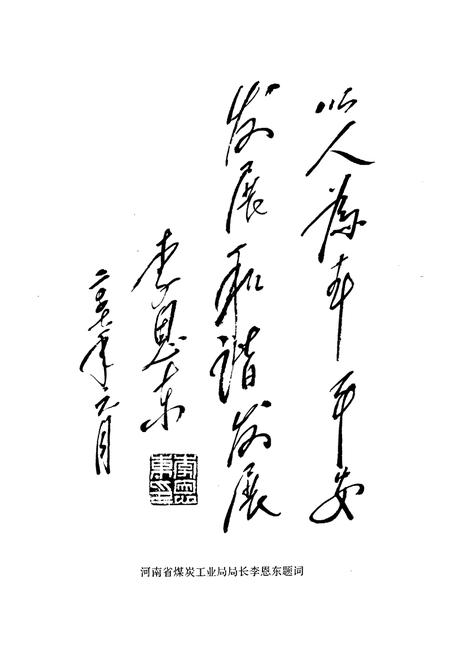 以人为本平安
发展和谐发展
李恩东
二〇〇七年元月
李恩
东印
河南省煤炭工业局局长李恩东题词